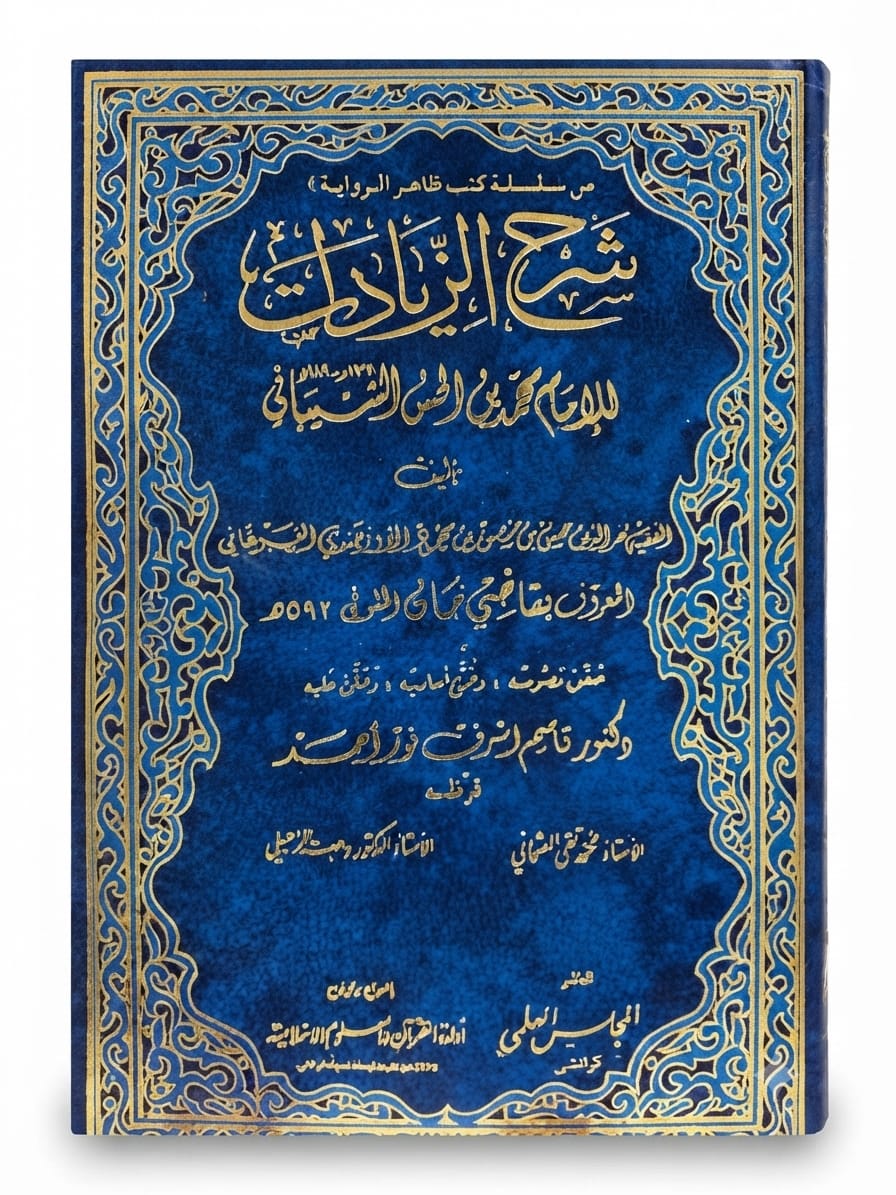 من سلسلة كتب ظاهر الرواية
شرح الزيادات
للإمام محمد بن الحسن الشيباني
تأليف
الفقيه فخر الدين حسن بن منصور بن محمود الأوزجندي الفرغاني
المعروف بقاضي خان المتوفى ٥٩٢هـ
دكتور قاسم اشرف نور أحمد
قرظه
الأستاذ محمد تقي العثماني
الأستاذ الدكتور وهبة الزحيلي
الناشر
المجلس العلمي
كراتشي
إدارة القرآن والعلوم الإسلامية